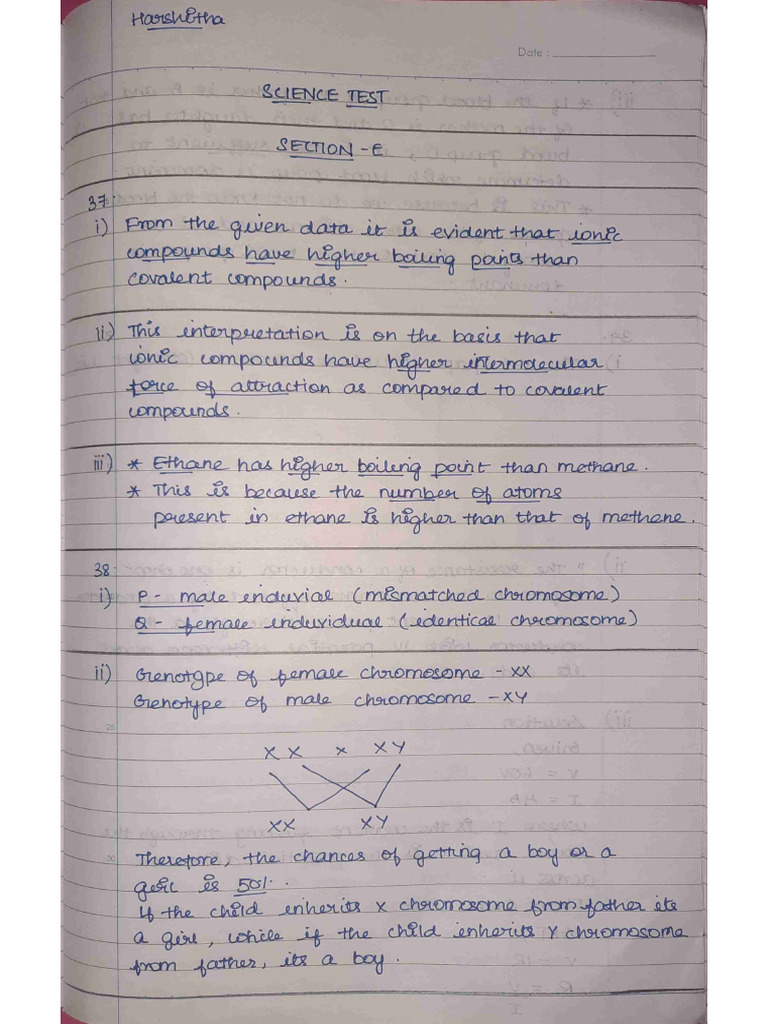 Harshitha
Date :
SCIENCE TEST
SECTION - E
37.
i) From the given data it is evident that ionic
compounds have higher boiling points than
covalent compounds.
ii) This interpretation is on the basis that
ionic compounds have higher intermolecular
force of attraction as compared to covalent
compounds.
iii) * Ethane has higher boiling point than methane.
* This is because the number of atoms
present in ethane is higher than that of methene.
38.
i) P - male enduvial (mismatched chromosome)
Q - female induvidual (identical chromosome)
ii) Genotype of female chromosome - XX
Genotype of male chromosome - XY
25
X X x X Y
XX XY
30
Therefore, the chances of getting a boy or a
girl is 50%.
If the child inherits X chromosome from father its
a girl, while if the child inherits Y chromosome
from father, its a boy.